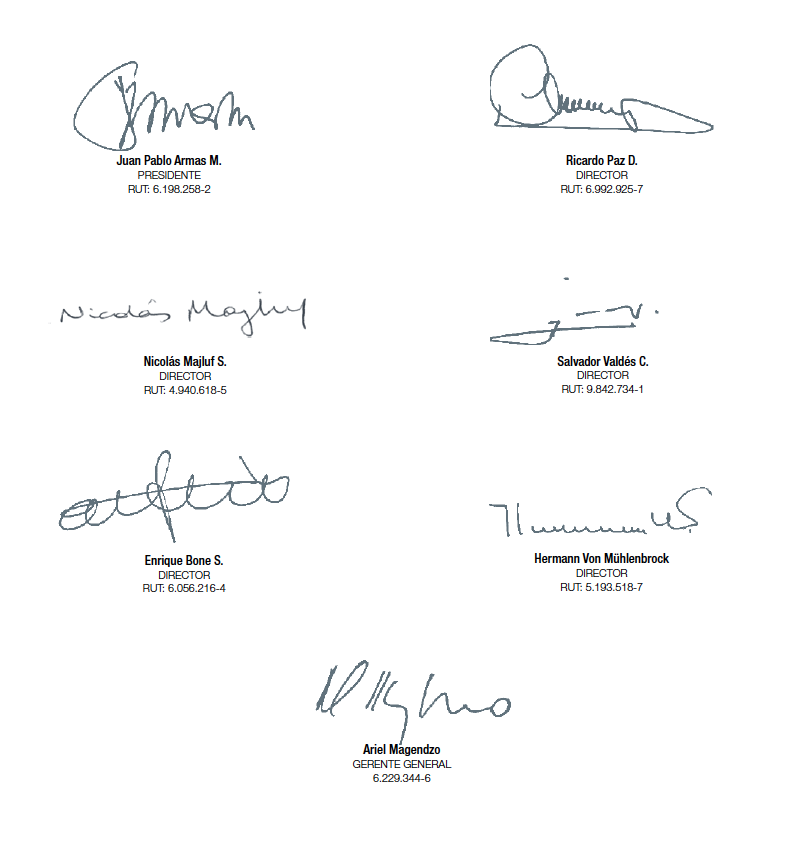 Juan Pablo Armas M.
PRESIDENTE
RUT: 6.198.258-2
Ricardo Paz D.
DIRECTOR
RUT: 6.992.925-7
Nicolás Majluf
Nicolás Majluf S.
DIRECTOR
RUT: 4.940.618-5
Salvador Valdés C.
DIRECTOR
RUT: 9.842.734-1
Enrique Bone S.
DIRECTOR
RUT: 6.056.216-4
Hermann Von Mühlenbrock
DIRECTOR
RUT: 5.193.518-7
Ariel Magendzo
GERENTE GENERAL
6.229.344-6